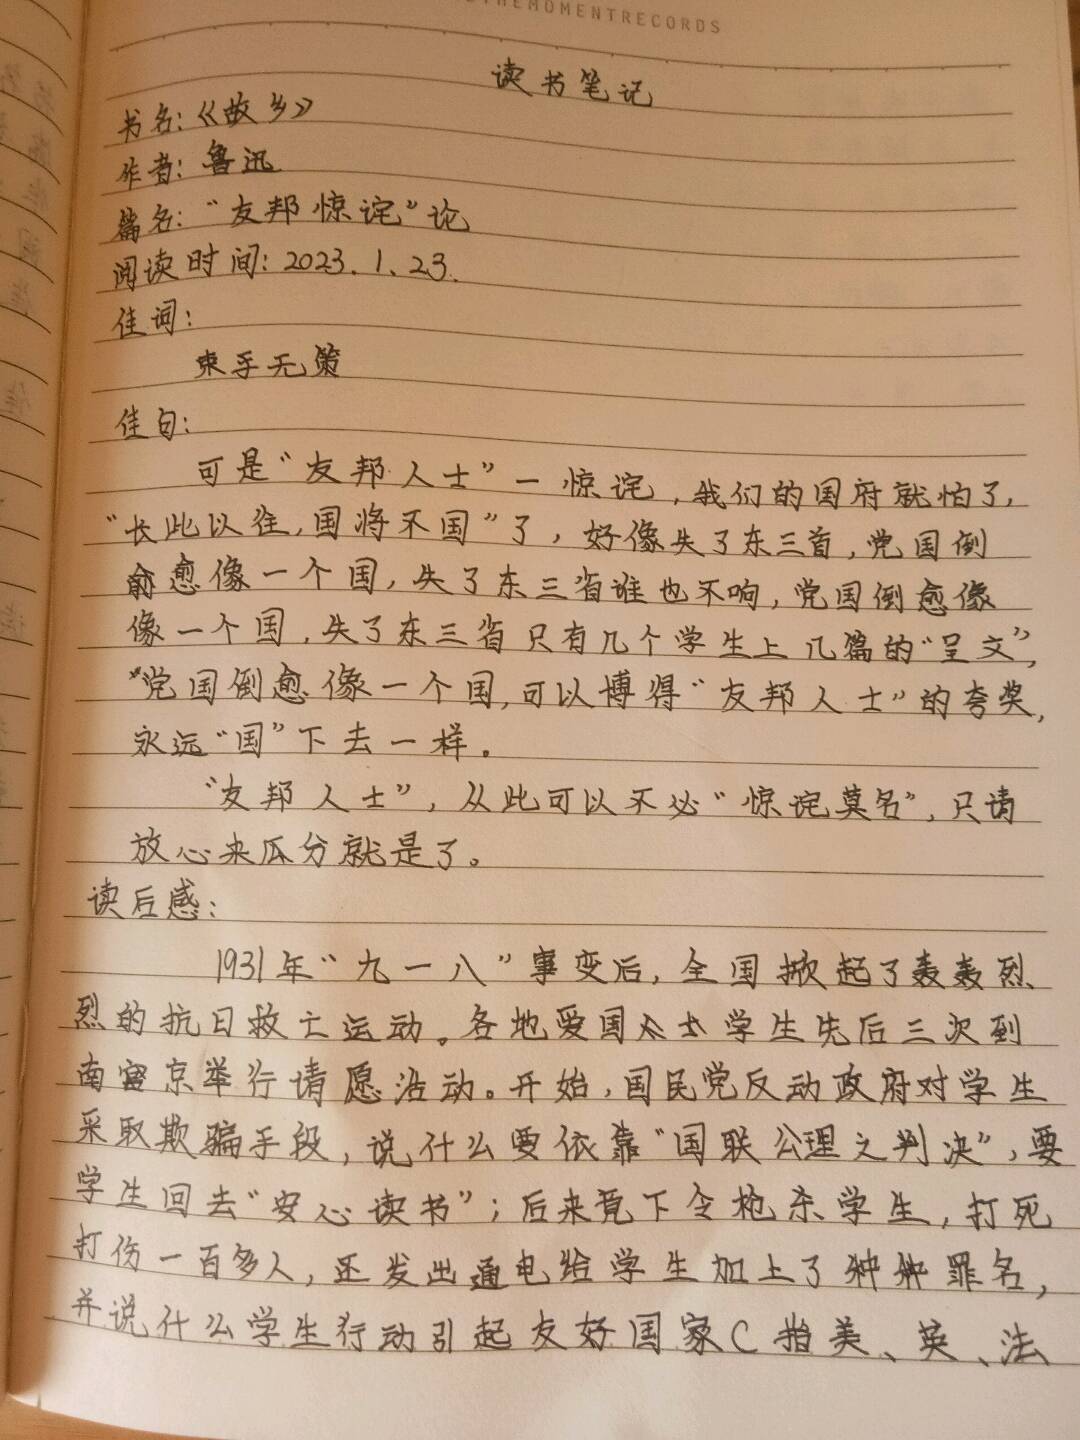 THEMOMENTRECORDS
读书笔记
书名:《故乡》
作者: 鲁迅
篇名:“友邦惊诧”论
阅读时间: 2023.1.23.
佳词:
束手无策
佳句:
可是“友邦人士”一惊诧,我们的国府就怕了,
“长此以往,国将不国”了,好像失了东三首,党国倒
愈像一个国,失了东三省谁也不响,党国倒愈像
像一个国,失了东三省只有几个学生上几篇的“呈文”,
党国倒愈像一个国,可以博得“友邦人士”的夸奖,
永远“国”下去一样。
“友邦人士”,从此可以不必“惊诧莫名”,只请
放心来瓜分就是了。
读后感:
1931年“九一八”事变后,全国掀起了轰轰烈
烈的抗日救亡运动。各地爱国学生先后三次到
南京举行请愿活动。开始,国民党反动政府对学生
采取欺骗手段,说什么要依靠“国联公理之判决”,要
学生回去“安心读书”;后来竟下令枪杀学生,打死
打伤一百多人,还发出通电给学生加上了种种罪名,
并说什么学生行动引起友好国家(指美、英、法